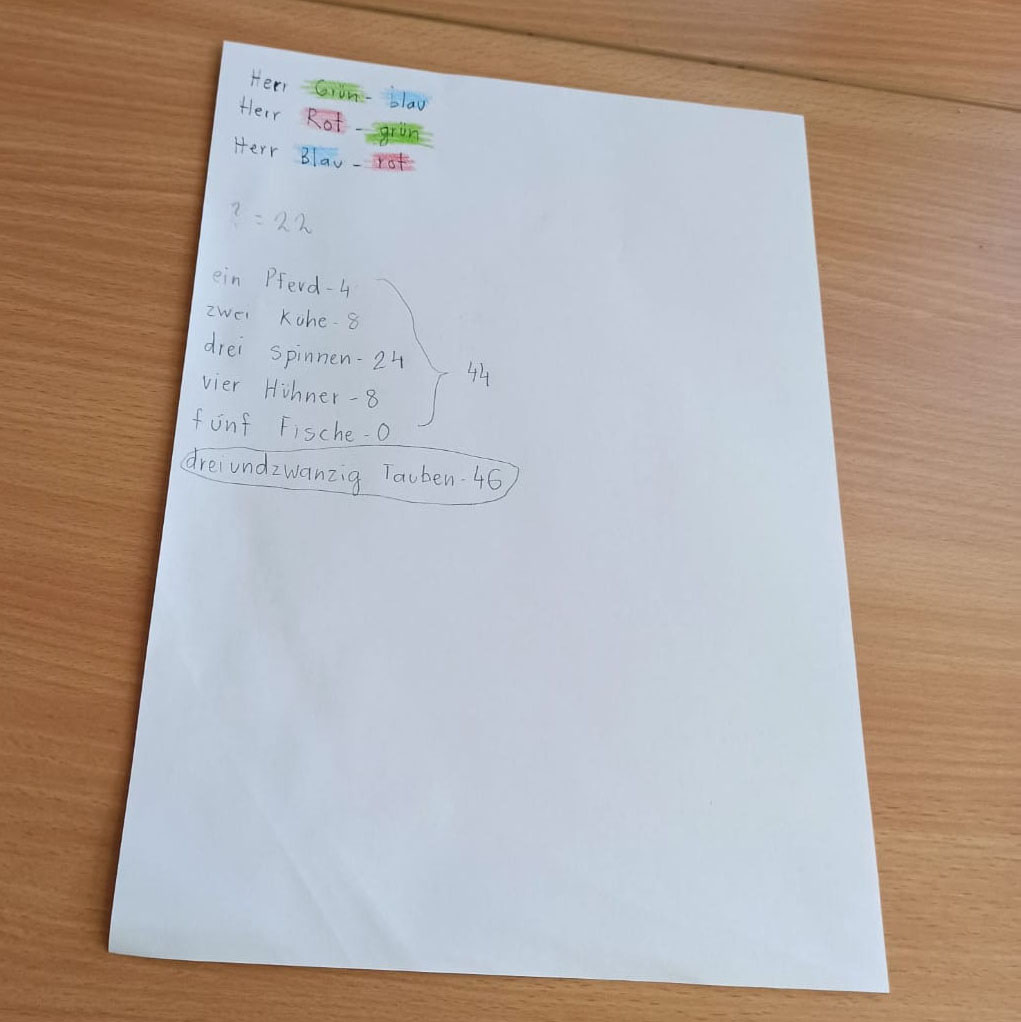 Herr Grün - blau
Herr Rot - grün
Herr Blau - rot
? = 22
ein Pferd - 4
zwei Kühe - 8
drei Spinnen - 24
vier Hühner - 8
fünf Fische - 0
44
dreiundzwanzig Tauben - 46